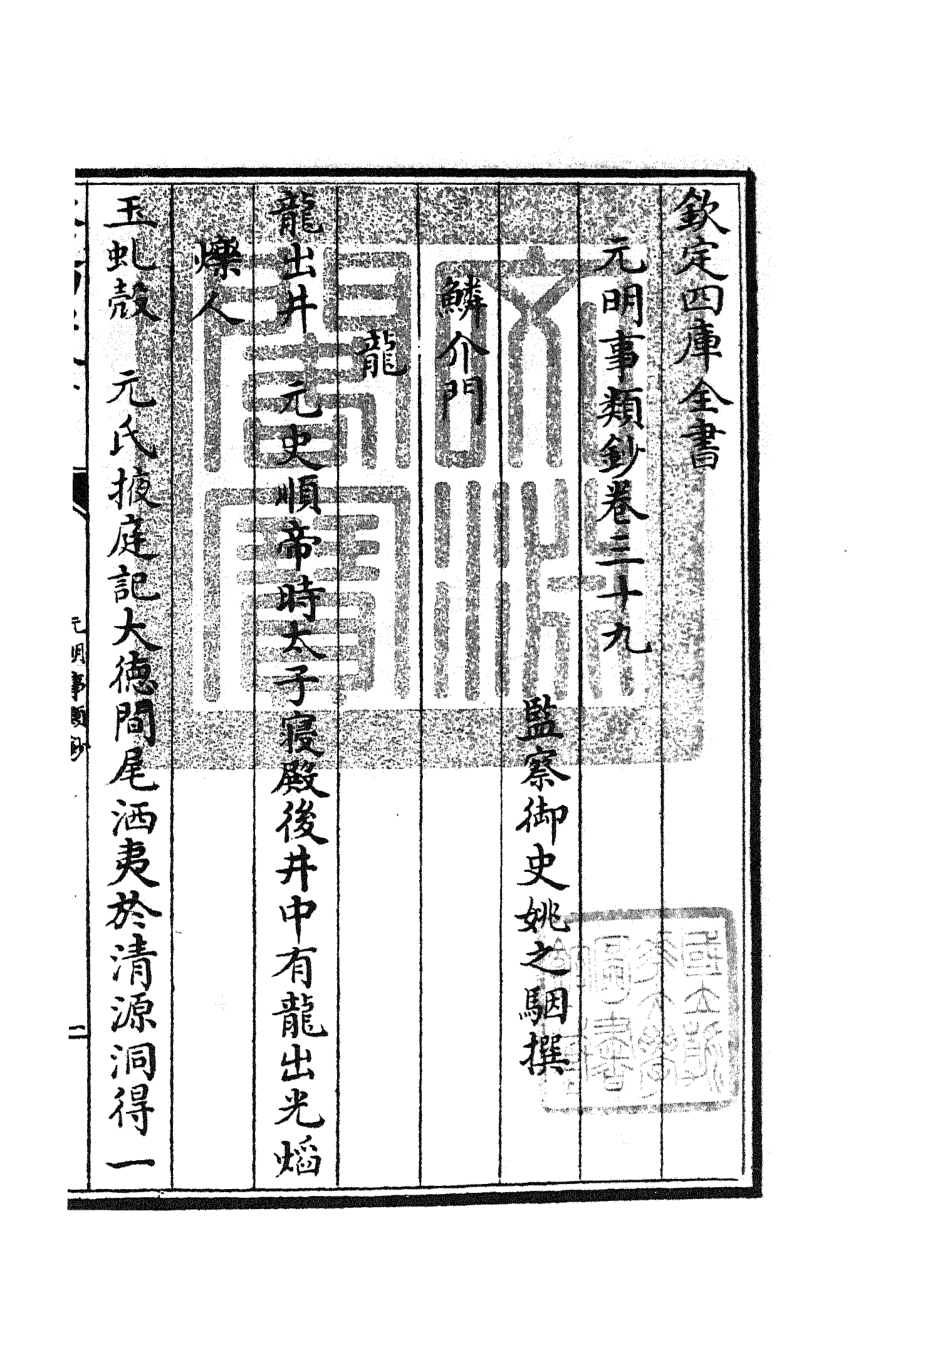 欽定四庫全書
元明事類鈔卷三十九
監察御史姚之駰撰
鱗介門
龍
龍出井　元史順帝時太子寢殿後井中有龍出光熖
爍人
玉虬殼　元氏掖庭記大德間尾洒夷於清源洞得一
元明事類鈔